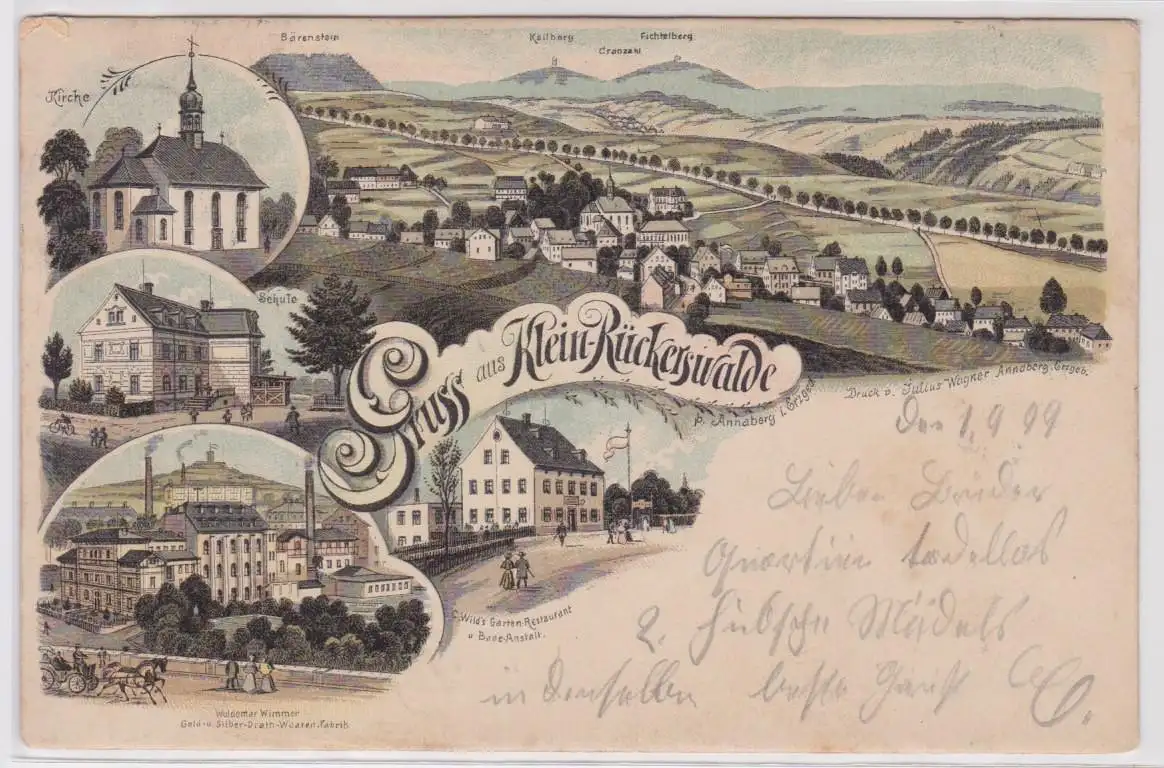 Bärenstein
Keilberg
Fichtelberg
Cranzahl
Kirche
Schule
Gruss aus Klein-Rückerswalde
b. Annaberg i. Erzgeb.
Druck v. Julius Wagner Annaberg, Erzgeb.
Den 1.9 99
Lieber Bruder
Quartier tadellos
2. hübsche Mädels
in denselben beste
C. Wild's Garten-Restaurant
u Bade-Anstalt.
Woldemar Wimmer
Gold- u Silber-Drath-Waaren-Fabrik